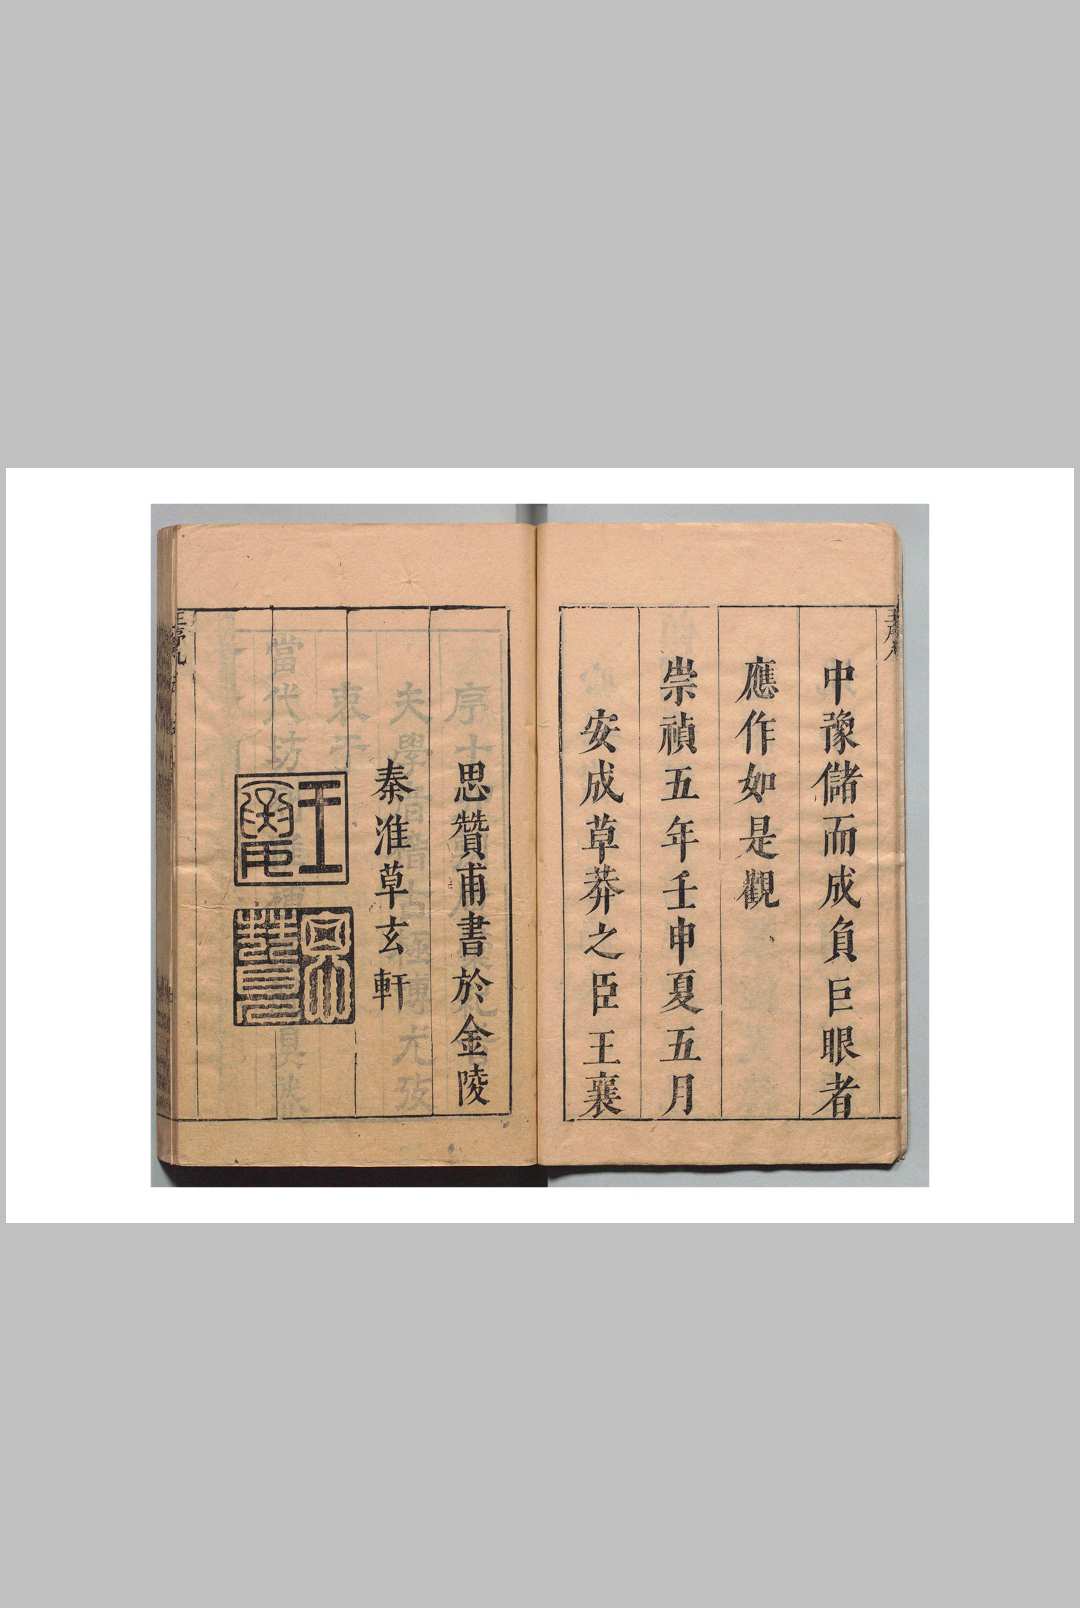 中豫儲而成負巨眼者
應作如是觀
崇禎五年壬申夏五月
安成草莽之臣王襄
思贊甫書於金陵
秦淮草玄軒